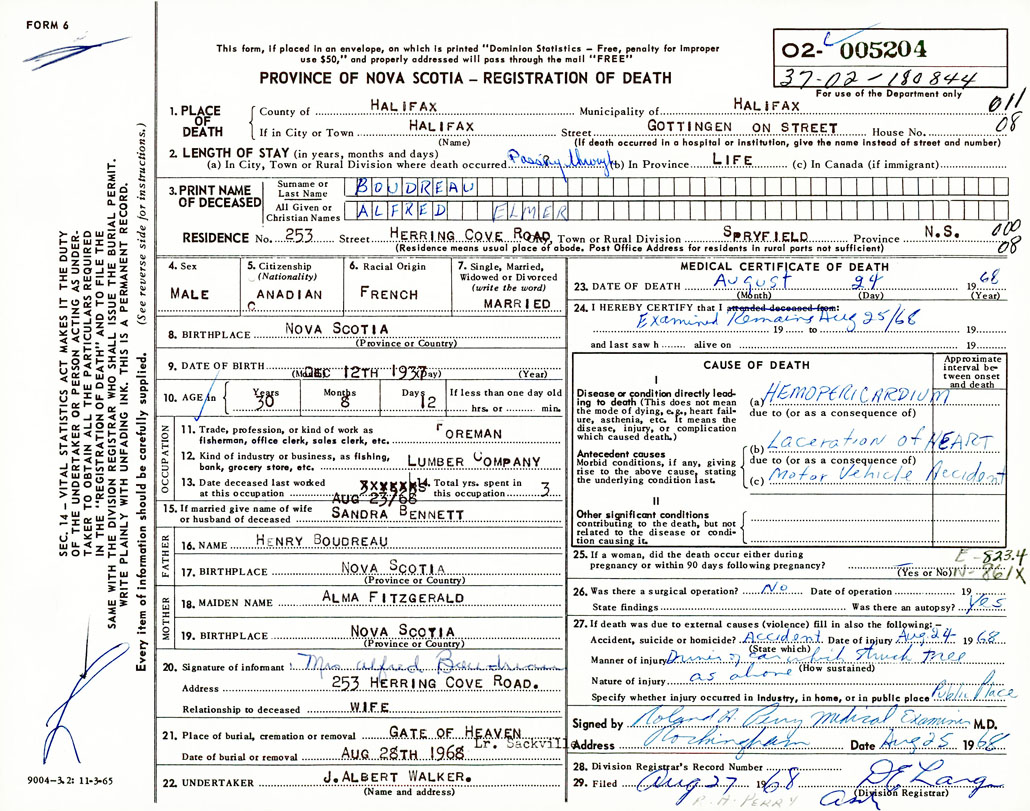 FORM 6
This form, if placed in an envelope, on which is printed "Dominion Statistics – Free, penalty for improper
use $50," and properly addressed will pass through the mail "FREE"
PROVINCE OF NOVA SCOTIA – REGISTRATION OF DEATH
02- 005204
37-02-180844
For use of the Department only
011
08
1. PLACE OF DEATH
County of HALIFAX Municipality of HALIFAX
If in City or Town HALIFAX Street GOTTINGEN ON STREET House No.
(Name) (If death occurred in a hospital or institution, give the name instead of street and number)
2. LENGTH OF STAY (in years, months and days)
(a) In City, Town or Rural Division where death occurred Passing through (b) In Province LIFE (c) In Canada (if immigrant)
3. PRINT NAME OF DECEASED
Surname or Last Name BOUDREAU
All Given or Christian Names ALFRED ELMER
RESIDENCE No. 253 Street HERRING COVE ROAD City, Town or Rural Division SPRYFIELD Province N.S.
000
08
(Residence means usual place of abode. Post Office Address for residents in rural parts not sufficient)
4. Sex
MALE
5. Citizenship
(Nationality)
CANADIAN
6. Racial Origin
FRENCH
7. Single, Married,
Widowed or Divorced
(write the word)
MARRIED
8. BIRTHPLACE NOVA SCOTIA
(Province or Country)
9. DATE OF BIRTH DEC 12TH 1937
(Month) (Day) (Year)
10. AGE in Years Months Days If less than one day old
30 8 12 hrs. or min.
OCCUPATION
11. Trade, profession, or kind of work as
fisherman, office clerk, sales clerk, etc. FOREMAN
12. Kind of industry or business, as fishing,
bank, grocery store, etc. LUMBER COMPANY
13. Date deceased last worked
at this occupation AUG 23/68
14. Total yrs. spent in
this occupation 3
15. If married give name of wife
or husband of deceased SANDRA BENNETT
FATHER
16. NAME HENRY BOUDREAU
17. BIRTHPLACE NOVA SCOTIA
(Province or Country)
MOTHER
18. MAIDEN NAME ALMA FITZGERALD
19. BIRTHPLACE NOVA SCOTIA
(Province or Country)
20. Signature of informant Mrs Alfred Boudreau
Address 253 HERRING COVE ROAD.
Relationship to deceased WIFE
21. Place of burial, cremation or removal GATE OF HEAVEN
Lr. Sackville
Date of burial or removal AUG 28TH 1968
22. UNDERTAKER J.ALBERT WALKER.
(Name and address)
MEDICAL CERTIFICATE OF DEATH
23. DATE OF DEATH August 24 1968
(Month) (Day) (Year)
24. I HEREBY CERTIFY that I attended deceased from:
Examined Remains Aug 25/68
19 to 19
and last saw h alive on 19
CAUSE OF DEATH
Approximate
interval be-
tween onset
and death
I
Disease or condition directly lead-
ing to death (This does not mean
the mode of dying, e.g., heart fail-
ure, asthenia, etc. It means the
disease, injury, or complication
which caused death.)
(a) HEMOPERICARDIUM
due to (or as a consequence of)
Antecedent causes
Morbid conditions, if any, giving
rise to the above cause, stating
the underlying condition last.
(b) Laceration of HEART
due to (or as a consequence of)
(c) Motor Vehicle Accident
II
Other significant conditions
contributing to the death, but not
related to the disease or condi-
tion causing it.
25. If a woman, did the death occur either during
pregnancy or within 90 days following pregnancy?
(Yes or No)
E-823.4
N-861X
26. Was there a surgical operation? No Date of operation 19
State findings Was there an autopsy? Yes
27. If death was due to external causes (violence) fill in also the following:–
Accident, suicide or homicide? Accident Date of injury Aug 24 1968
(State which)
Manner of injury Driver of car which struck tree
(How sustained)
Nature of injury as above
Specify whether injury occurred in Industry, in home, or in public place Public Place
Signed by Roland A. Perry Medical Examiner M.D.
Address Rockingham Date Aug 25 1968
28. Division Registrar's Record Number
29. Filed Aug 27 1968 D E Lang
(Division Registrar)
R. A. PERRY
SEC. 14 – VITAL STATISTICS ACT MAKES IT THE DUTY
OF THE UNDERTAKER OR PERSON ACTING AS UNDER-
TAKER TO OBTAIN ALL THE PARTICULARS REQUIRED
IN THE "REGISTRATION OF DEATH" AND TO FILE THE
SAME WITH THE DIVISION REGISTRAR WHO SHALL ISSUE THE BURIAL PERMIT.
WRITE PLAINLY WITH UNFADING INK. THIS IS A PERMANENT RECORD.
Every item of information should be carefully supplied. (See reverse side for instructions.)
9004-3.2: 11-3-65